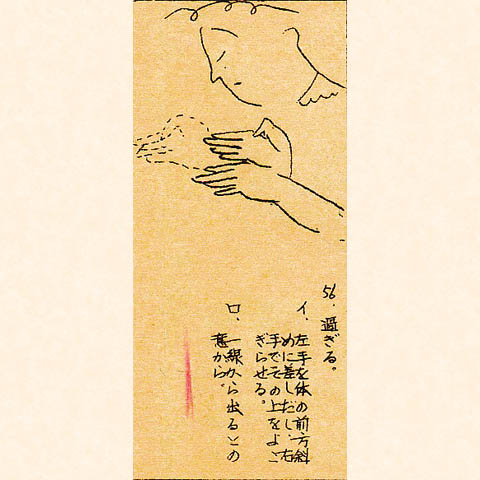 56. 過ぎる。
イ、左手を体の前方斜
めに差しだし、右
手でその上をよこ
ぎらせる。
ロ、一線から出るとの
意から。